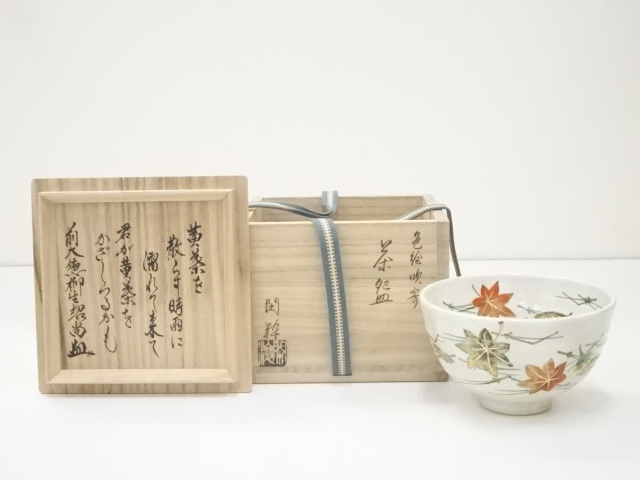 黄葉を
散らす時雨に
濡れて来て
君が黄葉を
かざしつるかも
前大徳柳生紹尚
色絵吹寄
茶盌